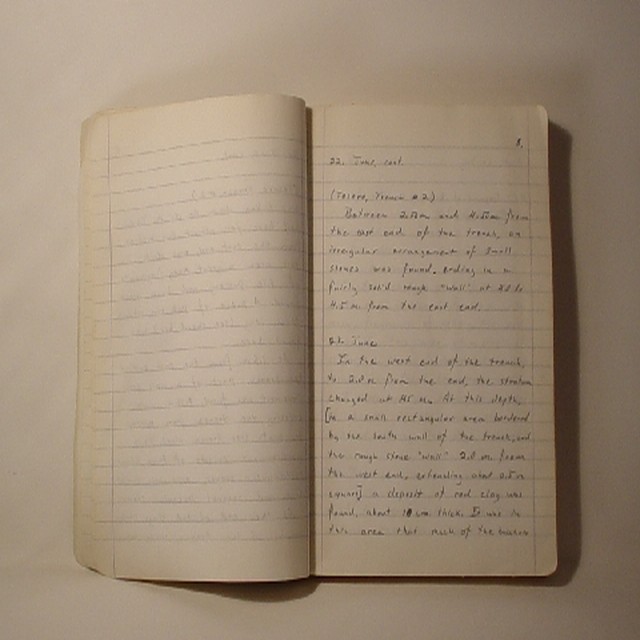 8.
22. June, cont.
(Tolera, Trench #2)
Between 2.50m and 4.50m from
the east end of the trench, an
irregular arrangement of small
stones was found, ending in a
fairly solid rough "wall" at
4.5 m. from the east end.
June
In the west end of the trench,
to 2.0 m from the end, the stratum
changed at At this depth,
[in a small rectangular area bordered
by the south wall of the trench, and
the rough stone "wall" 2.0 m from
the west end, extending about 0.5 m
square] a deposit of red clay was
found, about 10 cm. thick. It was in
this area that much of the